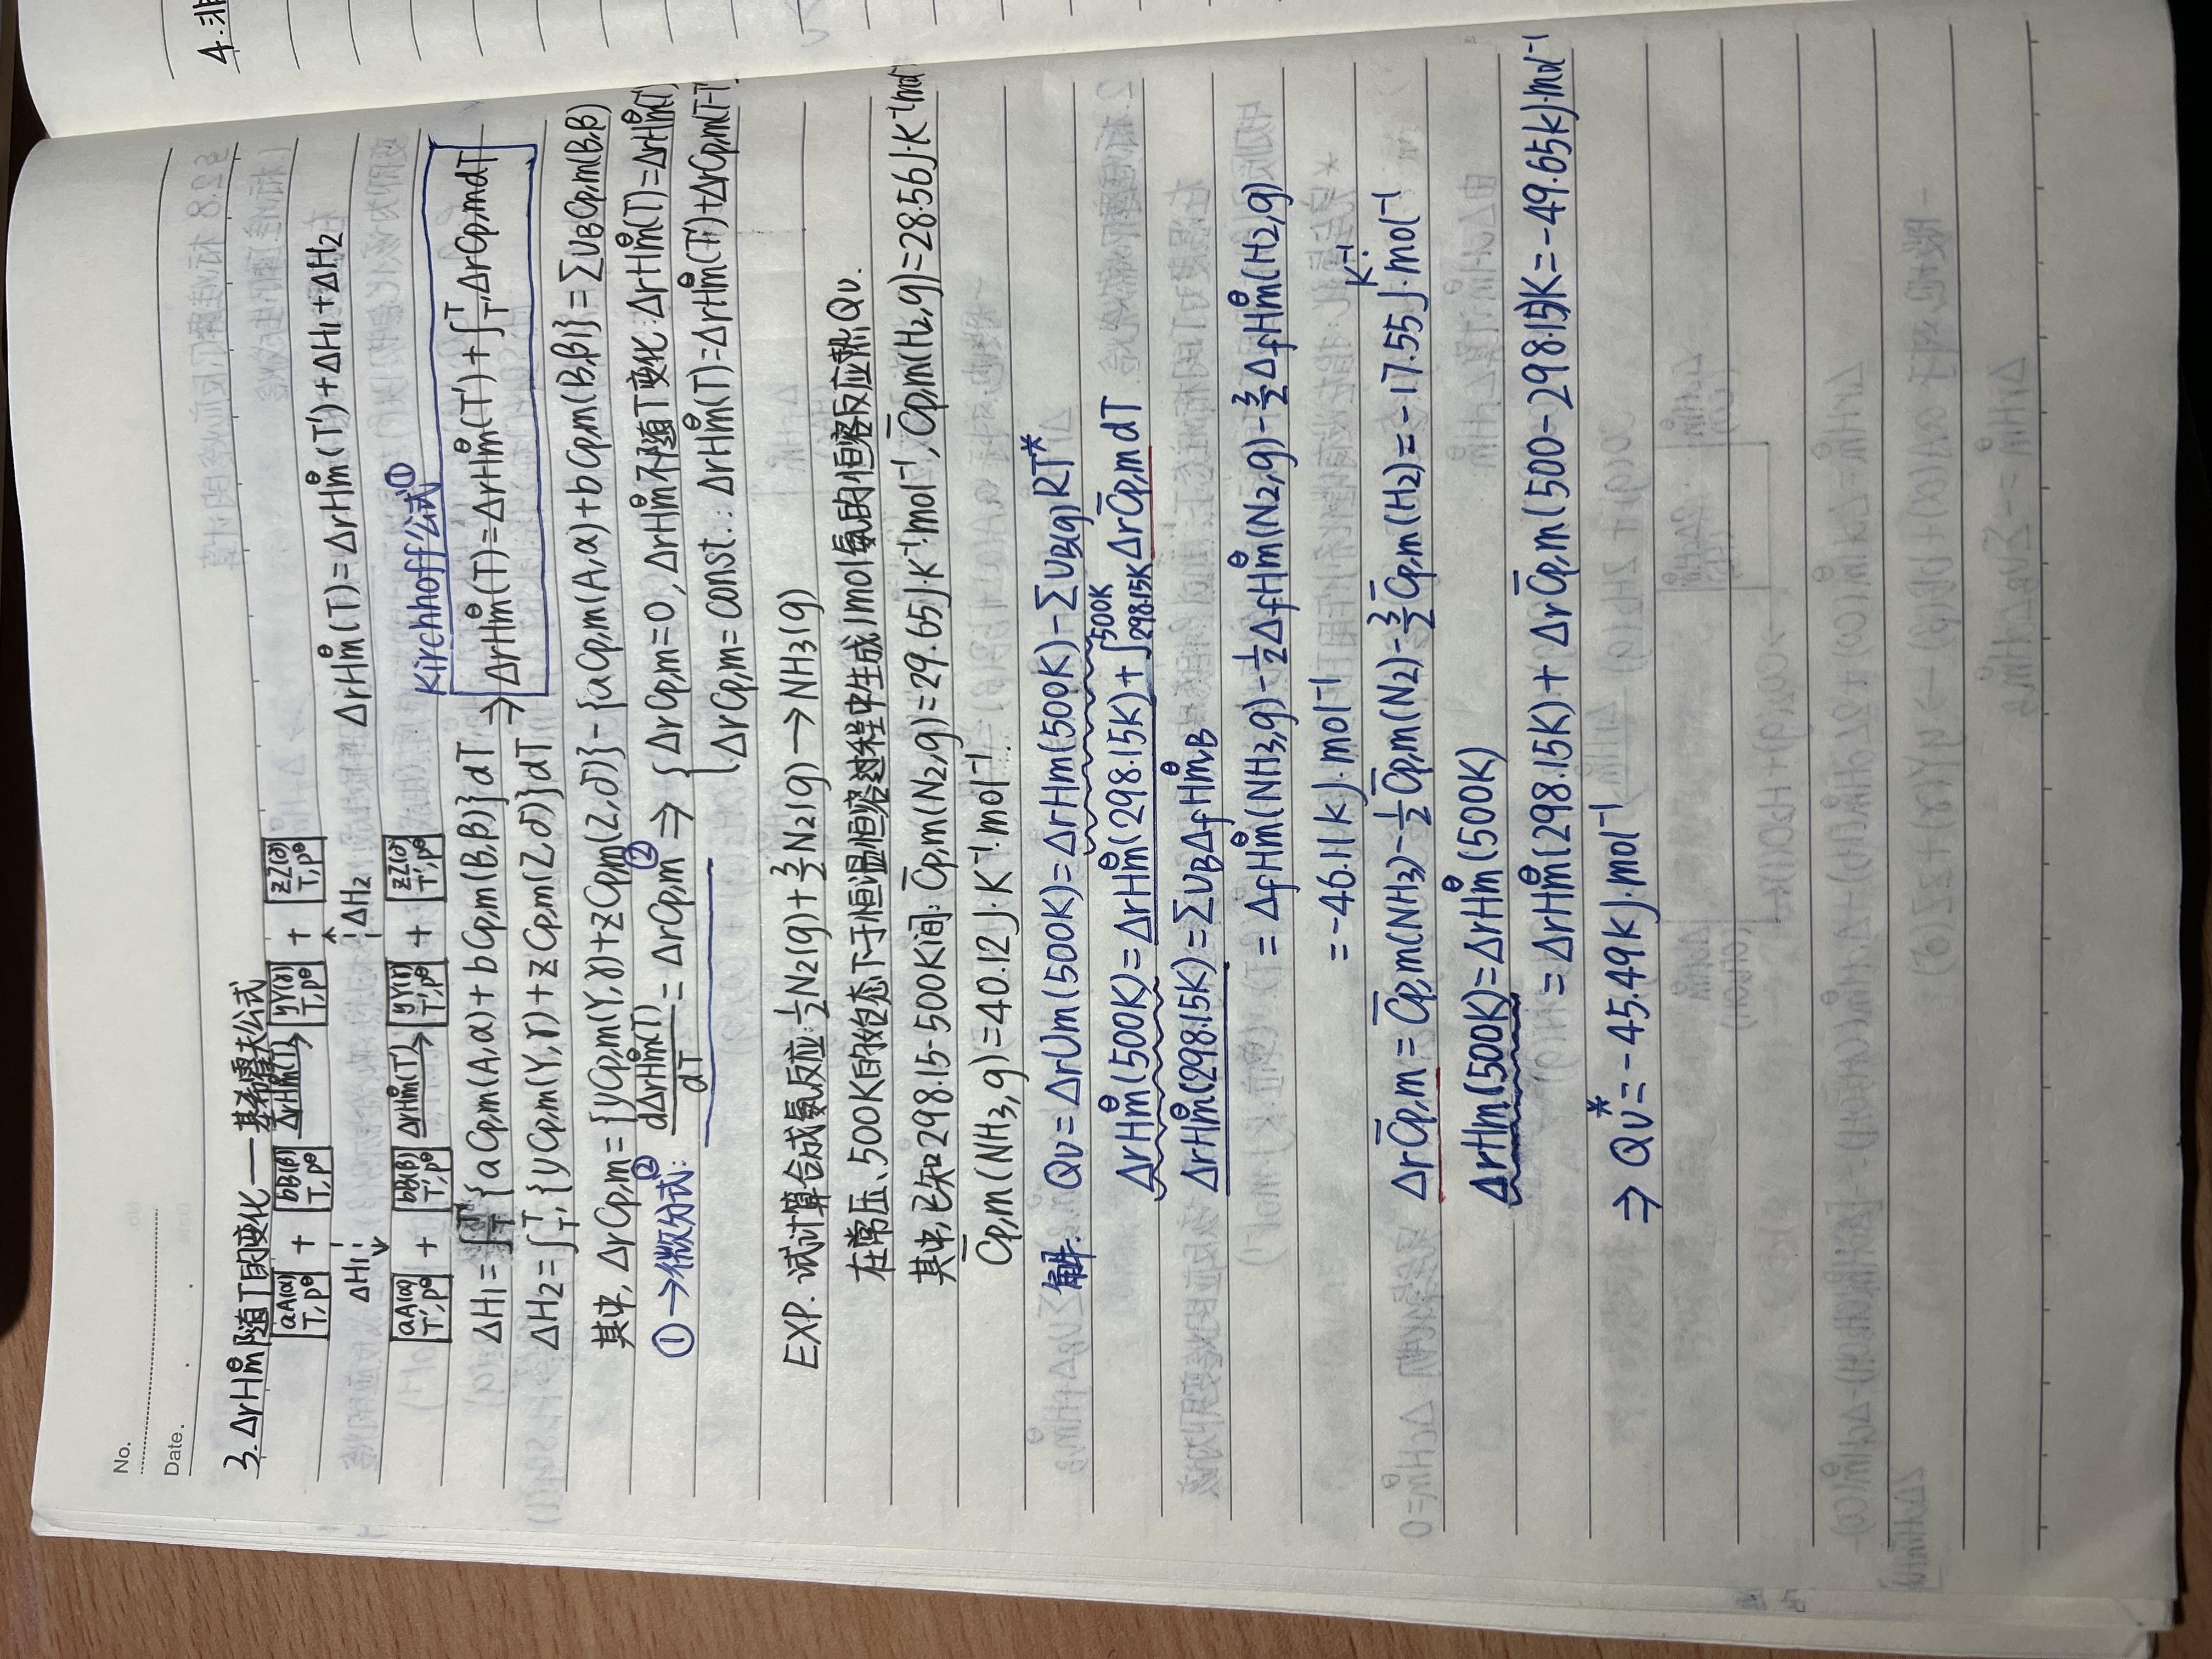 No.
Date.
3. ΔrHm^θ 随T的变化 —— 基希霍夫公式
aA(α) T,p^θ + bB(β) T,p^θ —ΔrHm^θ(T)→ yY(γ) T,p^θ + zZ(δ) T,p^θ
ΔH1 ↓ ↑ ΔH2 ΔrHm^θ(T)=ΔrHm^θ(T')+ΔH1+ΔH2
aA(α) T',p^θ + bB(β) T',p^θ —ΔrHm^θ(T')→ yY(γ) T',p^θ + zZ(δ) T',p^θ
Kirchhoff公式①
ΔH1=∫_T^T' {aCp,m(A,α)+bCp,m(B,β)}dT ⇒ ΔrHm^θ(T)=ΔrHm^θ(T')+∫_T'^T ΔrCp,mdT
ΔH2=∫_T'^T {yCp,m(Y,γ)+zCp,m(Z,δ)}dT
其中, ΔrCp,m={yCp,m(Y,γ)+zCp,m(Z,δ)}-{aCp,m(A,α)+bCp,m(B,β)}=∑υBCp,m(B,β)
①→微分式②: dΔrHm^θ(T)/dT=ΔrCp,m② ⇒ { ΔrCp,m=0, ΔrHm^θ不随T变化: ΔrHm^θ(T)=ΔrHm^θ(T')
ΔrCp,m=const.: ΔrHm^θ(T)=ΔrHm^θ(T')+ΔrCp,m(T-T'
EXP. 试计算合成氨反应: 1/2N2(g)+3/2N2(g)→NH3(g)
在常压、500K的始态下于恒温恒容过程中生成1mol氨的恒容反应热Qv.
其中,已知298.15-500K间: C̄p,m(N2,g)=29.65J·K⁻¹·mol⁻¹, C̄p,m(H2,g)=28.56J·K⁻¹·mol⁻
C̄p,m(NH3,g)=40.12J·K⁻¹·mol⁻¹.
解. Qv=ΔrUm(500K)=ΔrHm(500K)-∑υB(g)RT*
ΔrHm^θ(500K)=ΔrHm^θ(298.15K)+∫_298.15K^500K ΔrC̄p,mdT
ΔrHm^θ(298.15K)=∑υBΔfHm^θ,B
=ΔfHm^θ(NH3,g)-1/2ΔfHm^θ(N2,g)-3/2ΔfHm^θ(H2,g)
=-46.11kJ·mol⁻¹
ΔrC̄p,m=C̄p,m(NH3)-1/2C̄p,m(N2)-3/2C̄p,m(H2)=-17.55J·K⁻¹·mol⁻¹
ΔrHm(500K)=ΔrHm^θ(500K)
=ΔrHm^θ(298.15K)+ΔrC̄p,m(500-298.15)K=-49.65kJ·mol⁻¹
⇒ Qv*=-45.49kJ·mol⁻¹
4.非